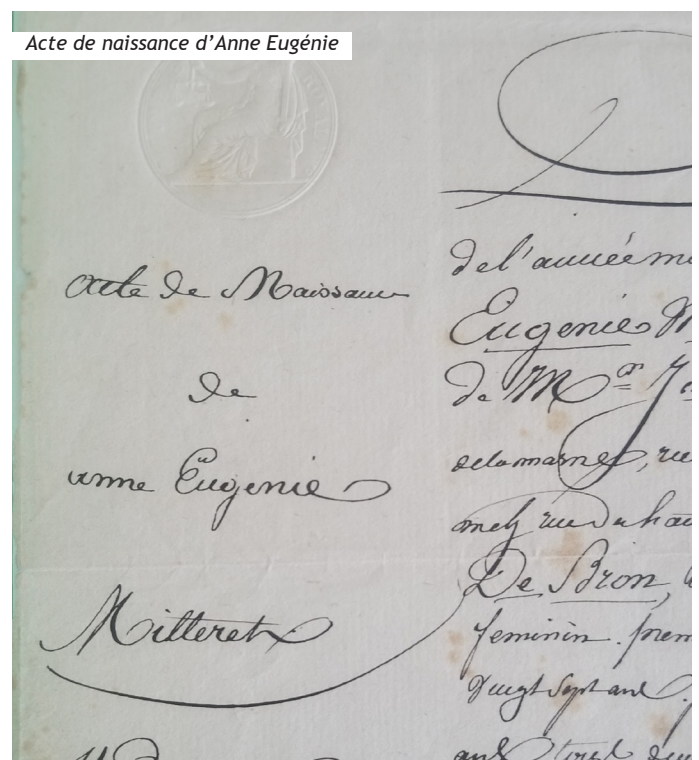 Acte de naissance d'Anne Eugénie
acte de Naissance
de
anne Eugenie
Milleret
de l'année m
Eugenie M
de Mr
delamarne, ru
metz rue du hau
De Bron,
feminin. prem
vingt sept ans